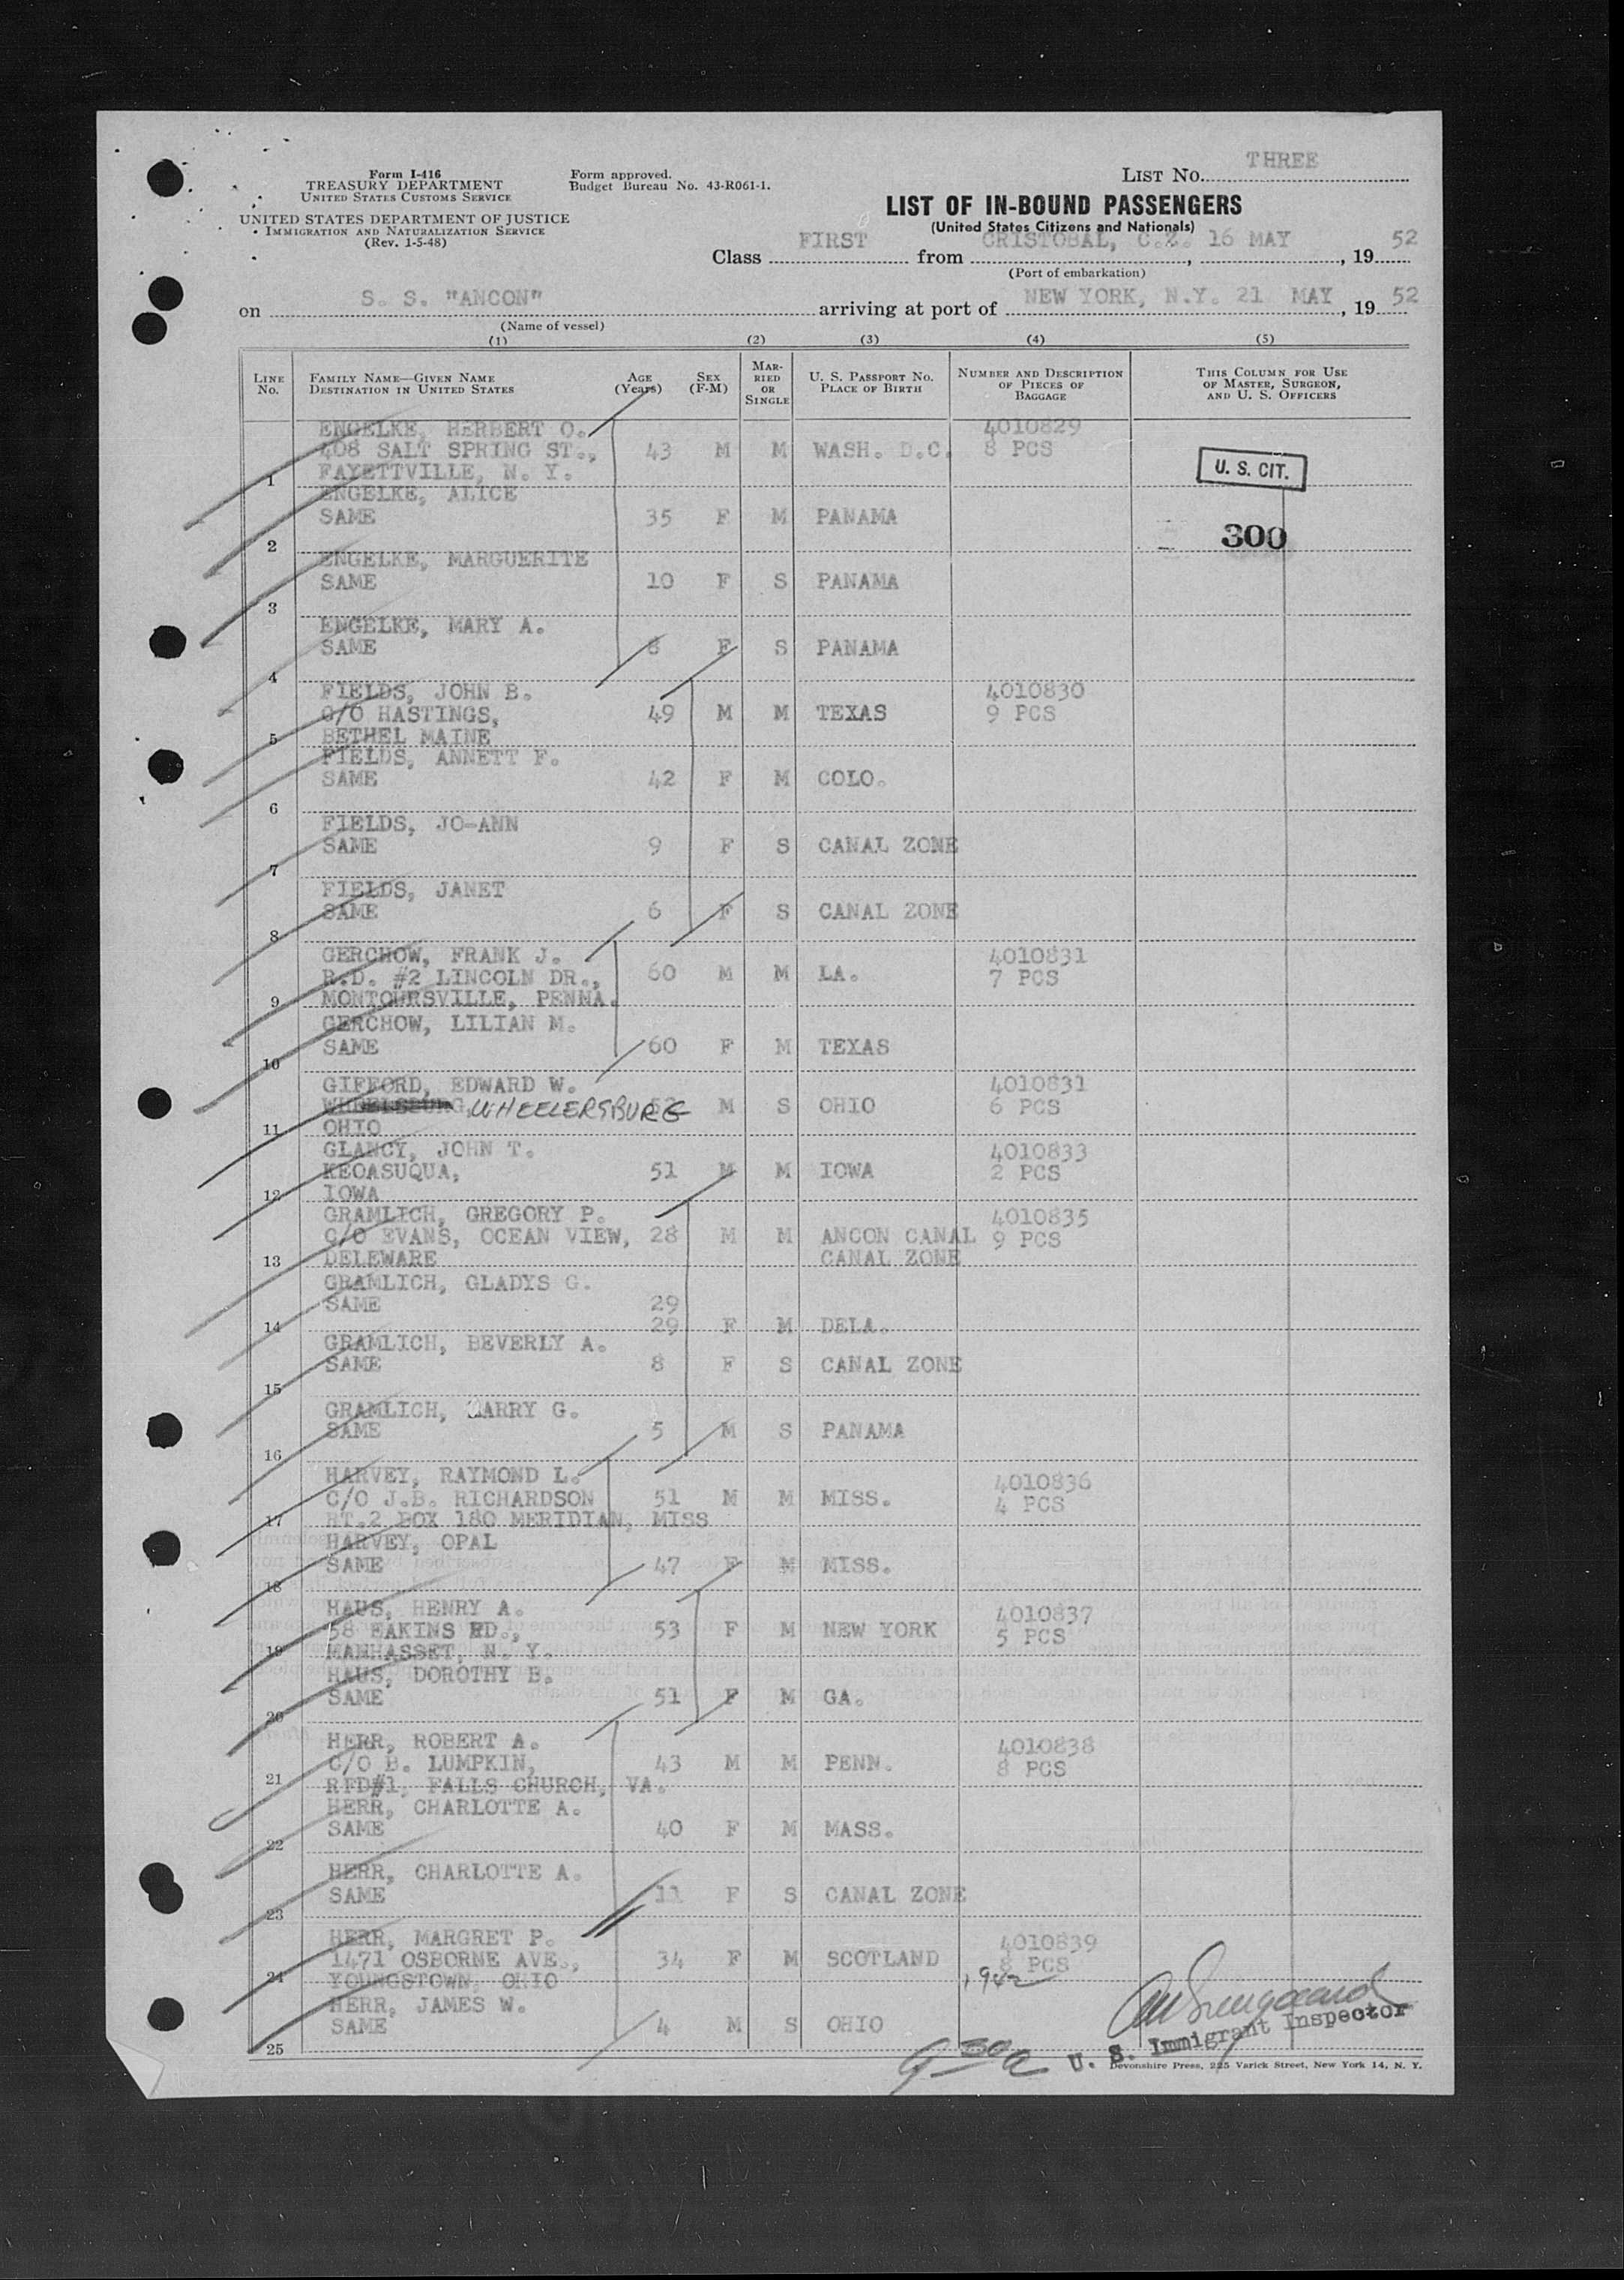 Form I-416
TREASURY DEPARTMENT
UNITED STATES CUSTOMS SERVICE
UNITED STATES DEPARTMENT OF JUSTICE
IMMIGRATION AND NATURALIZATION SERVICE
(Rev. 1-5-48)
Form approved.
Budget Bureau No. 43-R061-1.
LIST No. THREE
LIST OF IN-BOUND PASSENGERS
(United States Citizens and Nationals)
Class FIRST from CRISTOBAL, C.Z. 16 MAY, 19 52
(Port of embarkation)
on S. S. "ANCON" arriving at port of NEW YORK, N.Y. 21 MAY, 19 52
(Name of vessel)
(1) (2) (3) (4) (5)
LINE No. FAMILY NAME—GIVEN NAME DESTINATION IN UNITED STATES AGE (Years) SEX (F-M) MARRIED OR SINGLE U. S. PASSPORT NO. PLACE OF BIRTH NUMBER AND DESCRIPTION OF PIECES OF BAGGAGE THIS COLUMN FOR USE OF MASTER, SURGEON, AND U. S. OFFICERS
ENGELKE, HERBERT O. 4010829
408 SALT SPRING ST., 43 M M WASH. D.C. 8 PCS
1 FAYETTVILLE, N. Y.
U. S. CIT.
ENGELKE, ALICE
SAME 35 F M PANAMA
2
300
ENGELKE, MARGUERITE
SAME 10 F S PANAMA
3
ENGELKE, MARY A.
SAME 8 F S PANAMA
4
FIELDS, JOHN B. 4010830
C/O HASTINGS, 49 M M TEXAS 9 PCS
5 BETHEL MAINE
FIELDS, ANNETT F.
SAME 42 F M COLO.
6
FIELDS, JO-ANN
SAME 9 F S CANAL ZONE
7
FIELDS, JANET
SAME 6 F S CANAL ZONE
8
GERCHOW, FRANK J. 4010831
R.D. #2 LINCOLN DR., 60 M M LA. 7 PCS
9 MONTOURSVILLE, PENNA.
GERCHOW, LILIAN M.
SAME 60 F M TEXAS
10
GIFFORD, EDWARD W. 4010831
WHEELERSBURG M S OHIO 6 PCS
11 OHIO
GLANCY, JOHN T. 4010833
KEOASUQUA, 51 M M IOWA 2 PCS
12 IOWA
GRAMLICH, GREGORY P. 4010835
C/O EVANS, OCEAN VIEW, 28 M M ANCON CANAL 9 PCS
13 DELEWARE CANAL ZONE
GRAMLICH, GLADYS G.
SAME 29
14 29 F M DELA.
GRAMLICH, BEVERLY A.
SAME 8 F S CANAL ZONE
15
GRAMLICH, LARRY G.
SAME 5 M S PANAMA
16
HARVEY, RAYMOND L. 4010836
C/O J.B. RICHARDSON 51 M M MISS. 4 PCS
17 RT.2 BOX 180 MERIDIAN, MISS
HARVEY, OPAL
SAME 47 F M MISS.
18
HAUS, HENRY A. 4010837
58 EAKINS RD., 53 F M NEW YORK 5 PCS
19 MANHASSET, N. Y.
HAUS, DOROTHY B.
SAME 51 F M GA.
20
HERR, ROBERT A. 4010838
C/O B. LUMPKIN, 43 M M PENN. 8 PCS
21 RFD#1, FALLS CHURCH, VA.
HERR, CHARLOTTE A.
SAME 40 F M MASS.
22
HERR, CHARLOTTE A.
SAME 11 F S CANAL ZONE
23
HERR, MARGRET P. 4010839
1471 OSBORNE AVE., 34 F M SCOTLAND 8 PCS
24 YOUNGSTOWN, OHIO 1942
HERR, JAMES W.
SAME 4 M S OHIO
25
U. S. Immigrant Inspector
9 30 a
Devonshire Press, 225 Varick Street, New York 14, N. Y.